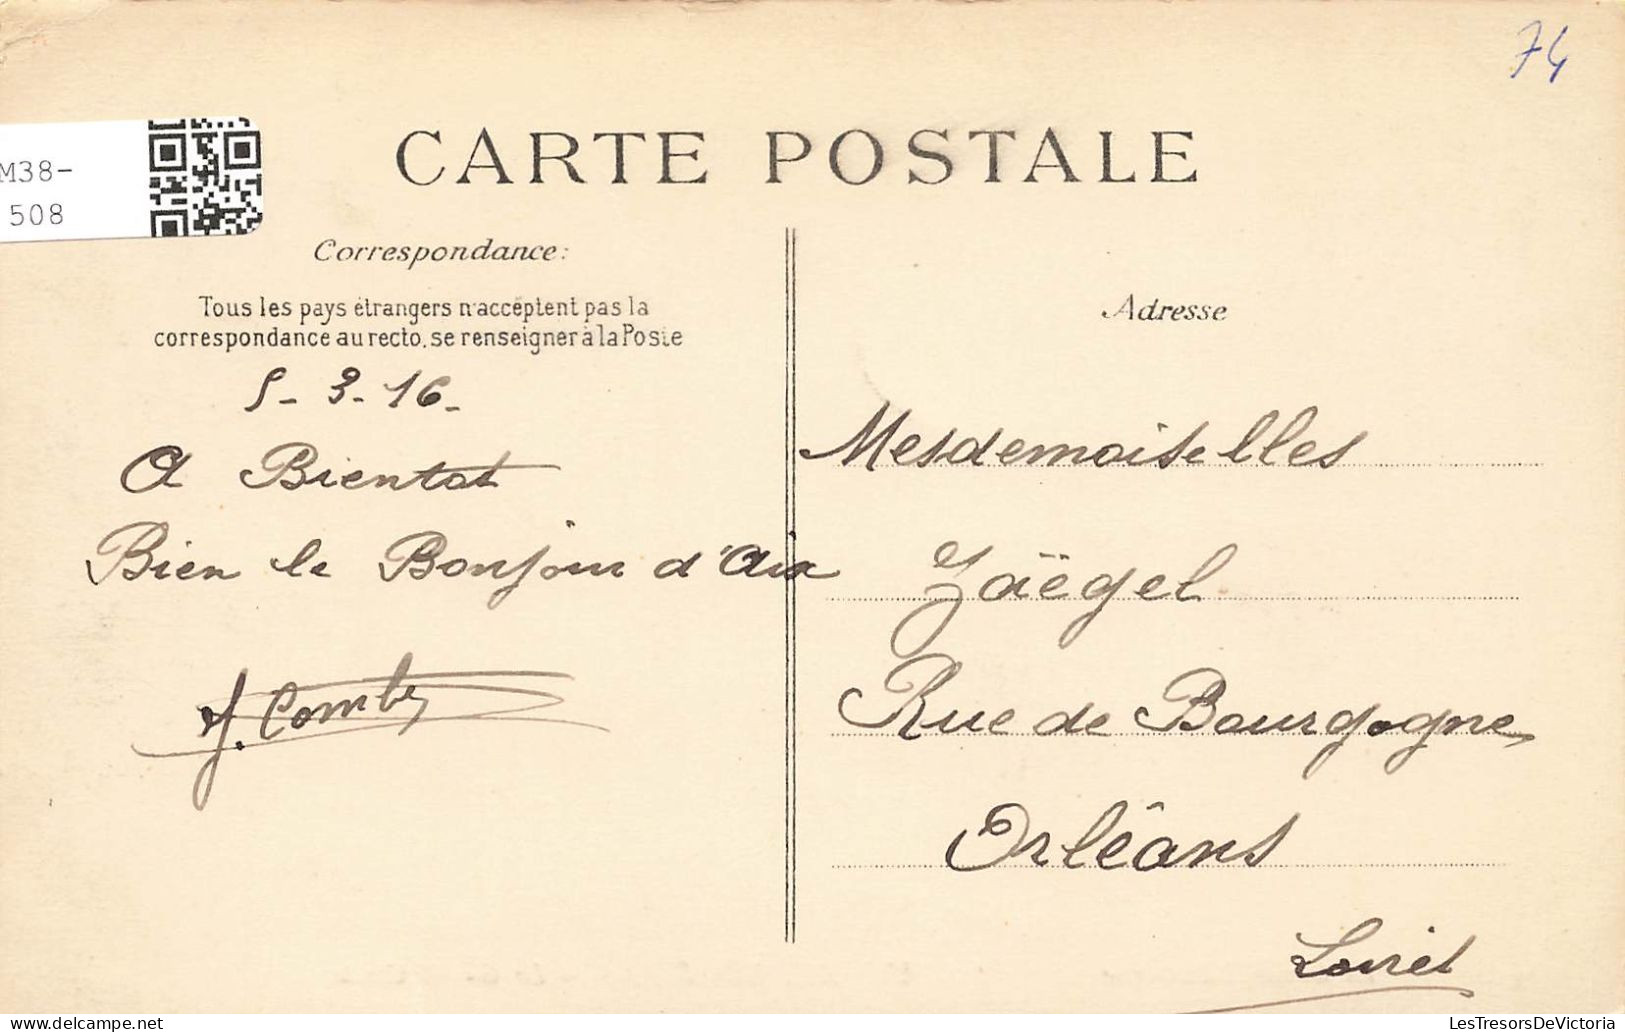 74
CARTE POSTALE
M38-
508
Correspondance:
Tous les pays étrangers n'acceptent pas la
correspondance au recto, se renseigner à la Poste
5-3-16-
A Bientot
Bien le Bonjour d'Aix
J. Combe
Adresse
Mesdemoiselles
Zäegel
Rue de Bourgogne
Orléans
Loiret
LesTresorsDeVictoria